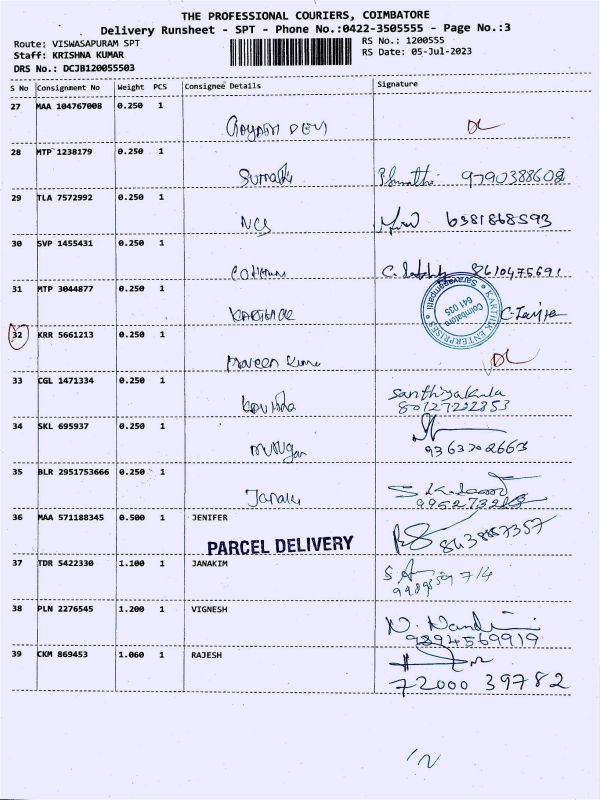 THE PROFESSIONAL COURIERS, COIMBATORE
Delivery Runsheet - SPT - Phone No.:0422-3505555 - Page No.:3
Route: VISWASAPURAM SPT RS No.: 1200555
Staff: KRISHNA KUMAR RS Date: 05-Jul-2023
DRS No.: DCJB120055503
S No Consignment No Weight PCS Consignee Details Signature
27 MAA 104767008 0.250 1
Gayatri Devi DL
28 MTP 1238179 0.250 1
Sumathi 9790388608
29 TLA 7572992 0.250 1
NCS 6381868593
30 SVP 1455431 0.250 1
8610475691
31 MTP 3044877 0.250 1
KARTHICK
KARTHIK ENTERPRISES
Coimbatore
641 035
Saravanampatti
32 KRR 5661213 0.250 1
Praveen Kumar DL
33 CGL 1471334 0.250 1
Santhiyakala
8012722253
34 SKL 695937 0.250 1
Murugan 9363202663
35 BLR 2951753666 0.250 1
Janaki
36 MAA 571188345 0.500 1 JENIFER
PARCEL DELIVERY
8438857357
37 TDR 5422330 1.100 1 JANAKIM
38 PLN 2276545 1.200 1 VIGNESH
N. Nandini
9394569919
39 CKM 869453 1.060 1 RAJESH
72000 39782